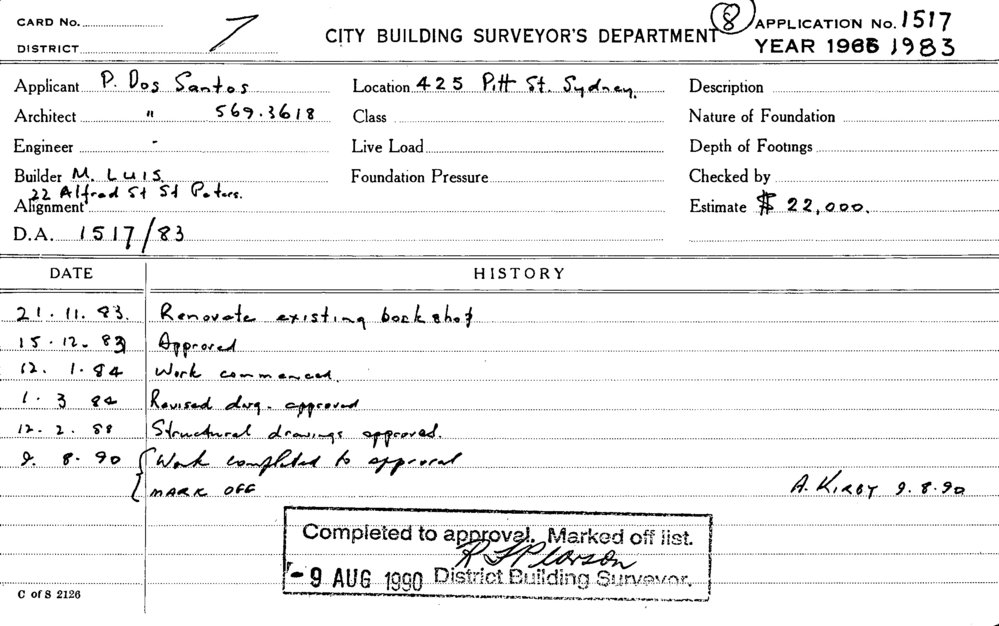 CARD No. 7 CITY BUILDING SURVEYOR'S DEPARTMENT (8) APPLICATION No. 1517
DISTRICT YEAR 1966 1983
Applicant P. Dos Santos Location 425 Pitt St. Sydney. Description
Architect " 569.3618 Class Nature of Foundation
Engineer - Live Load Depth of Footings
Builder M. LUIS. Foundation Pressure Checked by
22 Alfred St St Peters.
Alignment Estimate $ 22,000.
D.A. 1517/83
DATE HISTORY
21.11.83. Renovate existing bookshop
15.12.83 Approved
12.1.84 Work commenced.
1.3 84 Revised dwg. approved
12.2.88 Structural drawings approved.
9.8.90 Work completed to approval
MARK OFF A. KIRBY 9.8.90
Completed to approval. Marked off list.
R F Pearson
-9 AUG 1990 District Building Surveyor.
C of S 2126